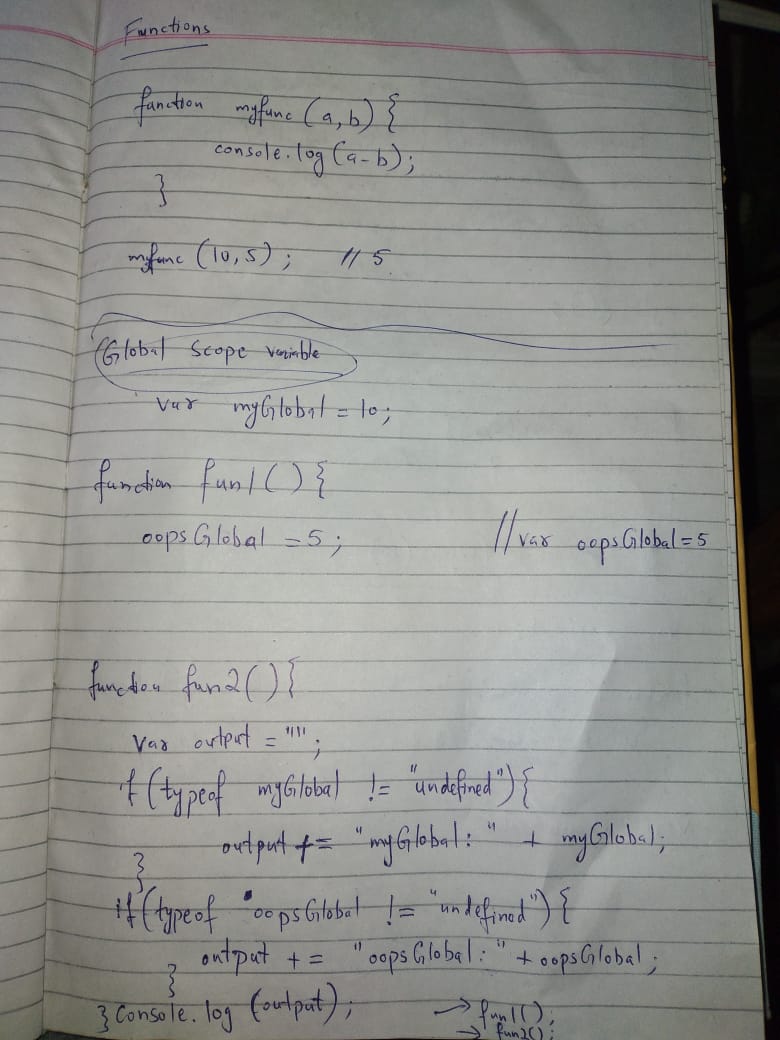 Functions
function myfunc (a,b) {
console.log (a-b);
}
myfunc (10,5) ; // 5
Global Scope variable
var myGlobal = 10;
function fun1 ( ) {
oopsGlobal = 5 ; // var oopsGlobal = 5
function fun2 ( ) {
var output = "" ;
if (typeof myGlobal != "undefined") {
output += "myGlobal: " + myGlobal;
}
if (typeof oopsGlobal != "undefined") {
output += "oopsGlobal: " + oopsGlobal ;
}
} Console.log (output) ; → fun1();
→ fun2();